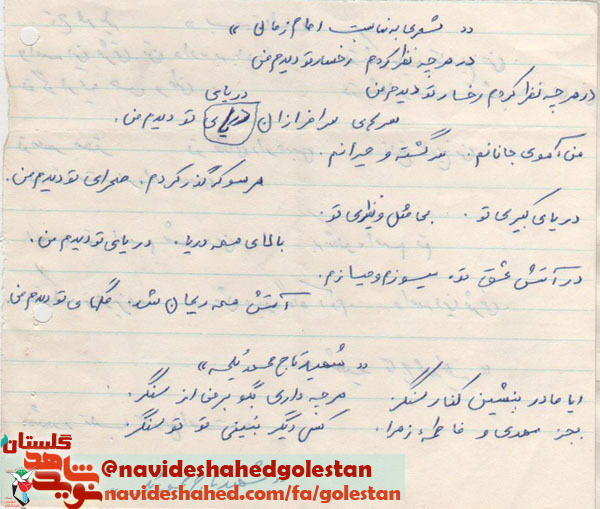 « شعری به نمایست امام زمان »
در هرچه نظر کردم رخسار تو دیدم من
در هرچه نظر کردم رخسار تو دیدم من
دریای
سرهای سرافرازان تو دیدم من.
من آهوی جانانم. سرگشته و حیرانم.
هر سو که گذر کردم. صحرای تو دیدم من.
دریای کبیری تو. بی مثل و نظیری تو.
بالای همه دریا. دریای تو دیدم من.
در آتش عشق تو. میسوزم و میسازم.
آتش همه ریحان شد. گلهای تو دیدم من.
« شهید تاج محمد »
ایا مادر بنشین کنار سنگر هرچه داری بگو برمن از سنگر
بجز مهدی و فاطمه زهرا. کس دیگر نبینی تو تو سنگر.
گلستان
نوید شاهد
@navideshahedgolestan
navideshahed.com/fa/golestan